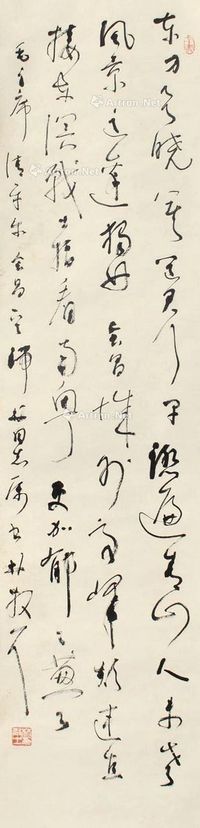 东方欲晓莫道君行早踏遍青山人未老
风景这边独好会昌城外高峰颠连直
接东溟战士指看南粤更加郁郁葱葱
毛主席清平乐会昌 同志属书
Artron.Net